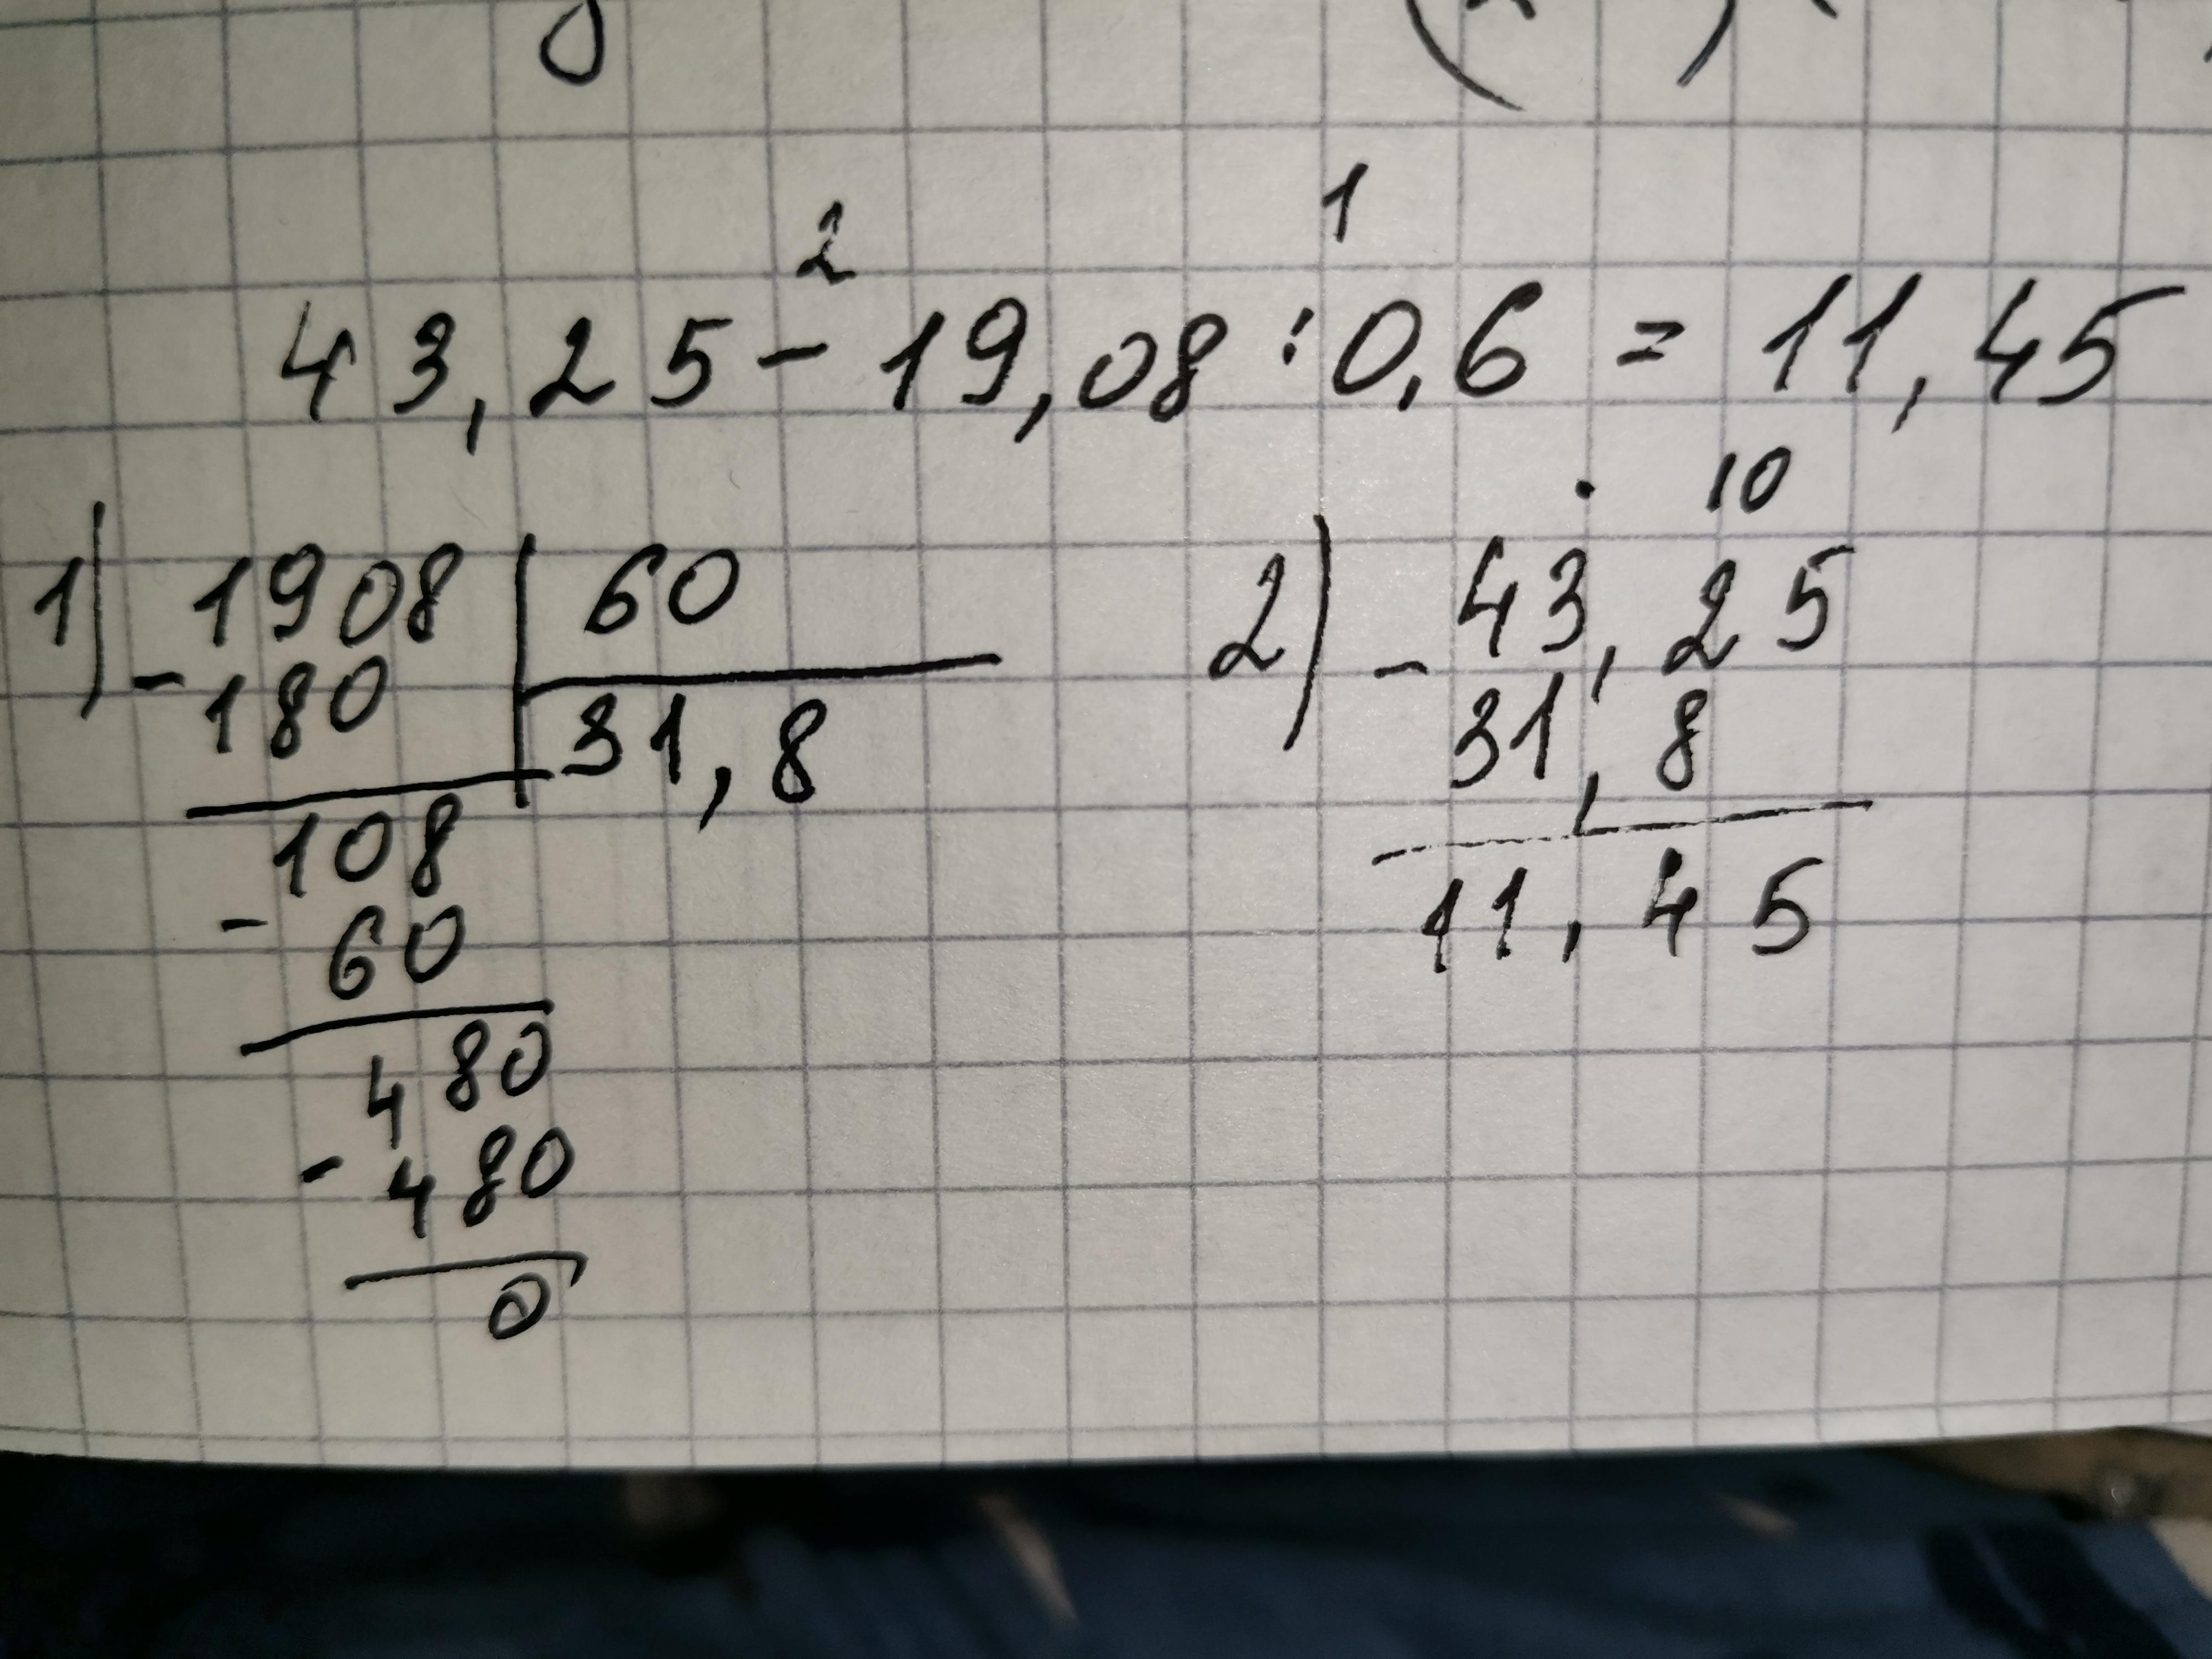 2 1
43,25 - 19,08 : 0,6 = 11,45
1) - 1908 | 60
180 31,8
108
- 60
480
- 480
0
. 10
2) - 43,25
31,8
11,45